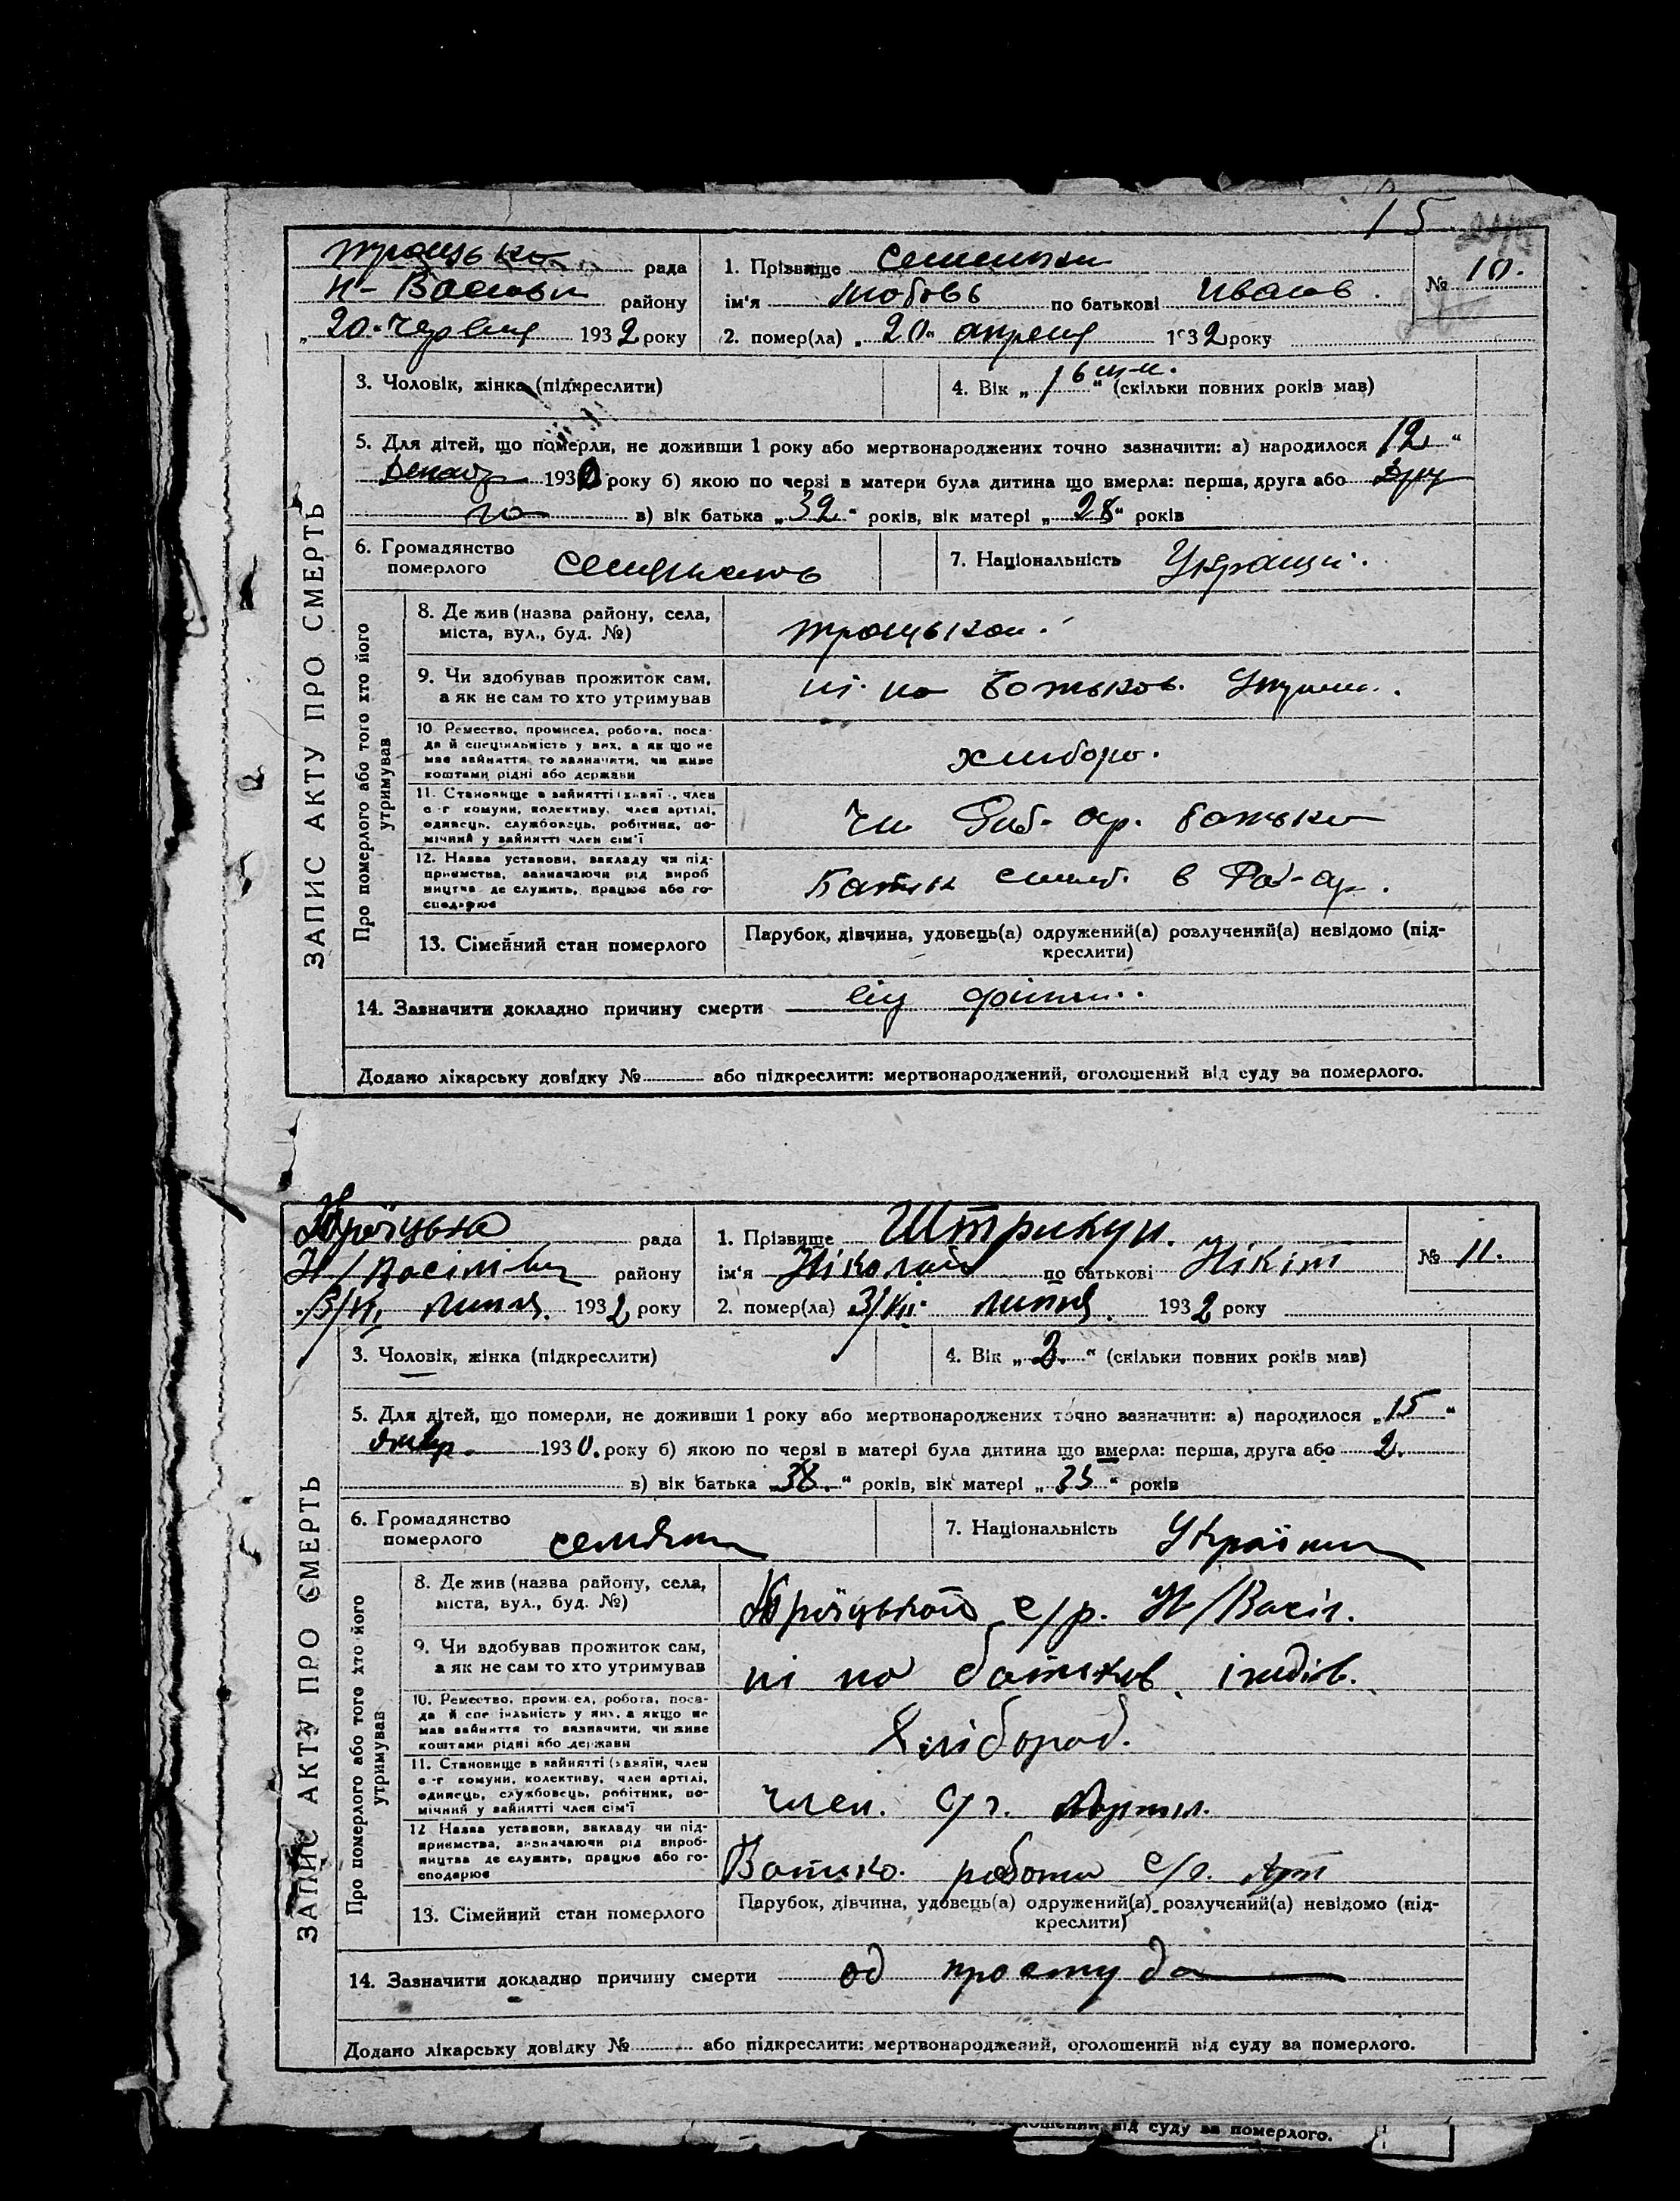 15
троцька рада
н-Васильи району
„20" червня 1932 року
1. Прізвище
ім'я любовь по батькові Иванов.
2. помер(ла) „20" апреля 1932 року
№ 10.
ЗАПИС АКТУ ПРО СМЕРТЬ
3. Чоловік, жінка (підкреслити)
4. Вік „16 м-ц." (скільки повних років мав)
5. Для дітей, що померли, не доживши 1 року або мертвонароджених точно зазначити: а) народилося 12"
Декабр 1930 року б) якою по черзі в матери була дитина що вмерла: перша, друга або дру
га в) вік батька „32" років, вік матері „28" років
6. Громадянство
померлого
7. Національність Украінц.
Про померлого або того хто його
утримував
8. Де жив (назва району, села,
міста, вул., буд. №)
троцькой.
9. Чи здобував прожиток сам,
а як не сам то хто утримував
ні. на батьков. Утрим.
10. Ремество, промисел, робота, поса-
да й спеціяльність у них, а як що не
має зайняття то зазначити, чи живе
коштами рідні або держави
хлибороб.
11. Становище в зайнятті (хазяї, член
с-г комуни, колективу, член артілі,
одинець, службовець, робітник, по-
мічний у зайнятті член сім'ї
батько
12. Назва установи, закладу чи під-
приємства, зазначаючи рід вироб
ництва де служить, працює або го-
сподарює
13. Сімейний стан померлого
Парубок, дівчина, удовець(а) одружений(а) розлучений(а) невідомо (під-
креслити)
14. Зазначити докладно причину смерти від
Додано лікарську довідку № або підкреслити: мертвонароджений, оголошений від суду за померлого.
Троїцька рада
Н/Васілівц району
3/VII липня 1932 року
1. Прізвище Штрикун.
ім'я Ніколай по батькові Нікіт
2. помер(ла) 3/VII. липня. 1932 року
№ 11.
ЗАПИС АКТУ ПРО СМЕРТЬ
3. Чоловік, жінка (підкреслити)
4. Вік „2." (скільки повних років мав)
5. Для дітей, що померли, не доживши 1 року або мертвонароджених точно зазначити: а) народилося „15"
1930. року б) якою по черзі в матері була дитина що вмерла: перша, друга або 2.
в) вік батька „38." років, вік матері „35" років
6. Громадянство
померлого
селянин
7. Національність Українец
Про померлого або того хто його
утримував
8. Де жив (назва району, села,
міста, вул., буд. №)
Троїцької с/р. Н/Васіл.
9. Чи здобував прожиток сам,
а як не сам то хто утримував
ні на батьков.
10. Ремество, промисел, робота, поса-
да й спеціяльність у них, а якщо не
має зайняття то зазначити, чи живе
коштами рідні або держави
Хлібороб.
11. Становище в зайнятті (хазяїн, член
с-г комуни, колективу, член артілі,
одинець, службовець, робітник, по-
мічний у зайнятті член сім'ї
член. с/г. Артил.
12. Назва установи, закладу чи під-
приємства, зазначаючи рід вироб-
ництва де служить, працює або го-
сподарює
Батько. работи с/г. Арт
13. Сімейний стан померлого
Парубок, дівчина, удовець(а) одружений(а) розлучений(а) невідомо (під-
креслити)
14. Зазначити докладно причину смерти од простуда
Додано лікарську довідку № або підкреслити: мертвонароджений, оголошений від суду за померлого.
оголошений від суду за померлого.